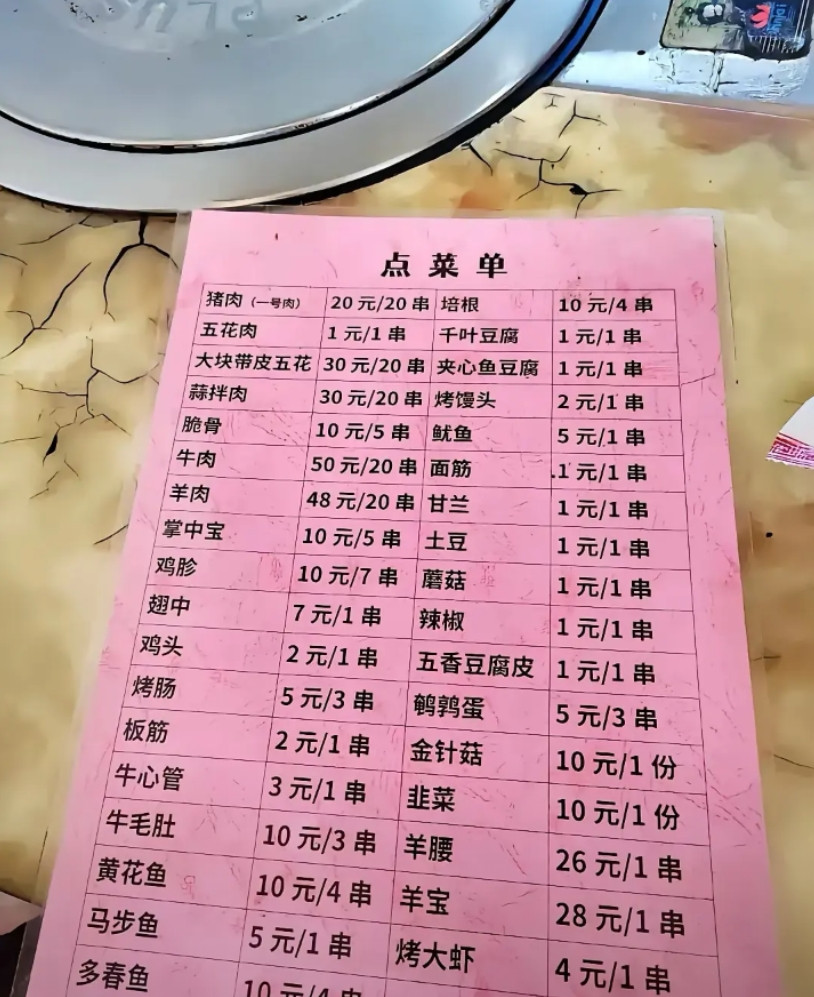 点菜单
猪肉（一号肉） 20元/20串 培根 10元/4串
五花肉 1元/1串 千叶豆腐 1元/1串
大块带皮五花 30元/20串 夹心鱼豆腐 1元/1串
蒜拌肉 30元/20串 烤馒头 2元/1串
脆骨 10元/5串 鱿鱼 5元/1串
牛肉 50元/20串 面筋 1元/1串
羊肉 48元/20串 甘兰 1元/1串
掌中宝 10元/5串 土豆 1元/1串
鸡胗 10元/7串 蘑菇 1元/1串
翅中 7元/1串 辣椒 1元/1串
鸡头 2元/1串 五香豆腐皮 1元/1串
烤肠 5元/3串 鹌鹑蛋 5元/3串
板筋 2元/1串 金针菇 10元/1份
牛心管 3元/1串 韭菜 10元/1份
牛毛肚 10元/3串 羊腰 26元/1串
黄花鱼 10元/4串 羊宝 28元/1串
马步鱼 5元/1串 烤大虾 4元/1串
多春鱼 10元/4串